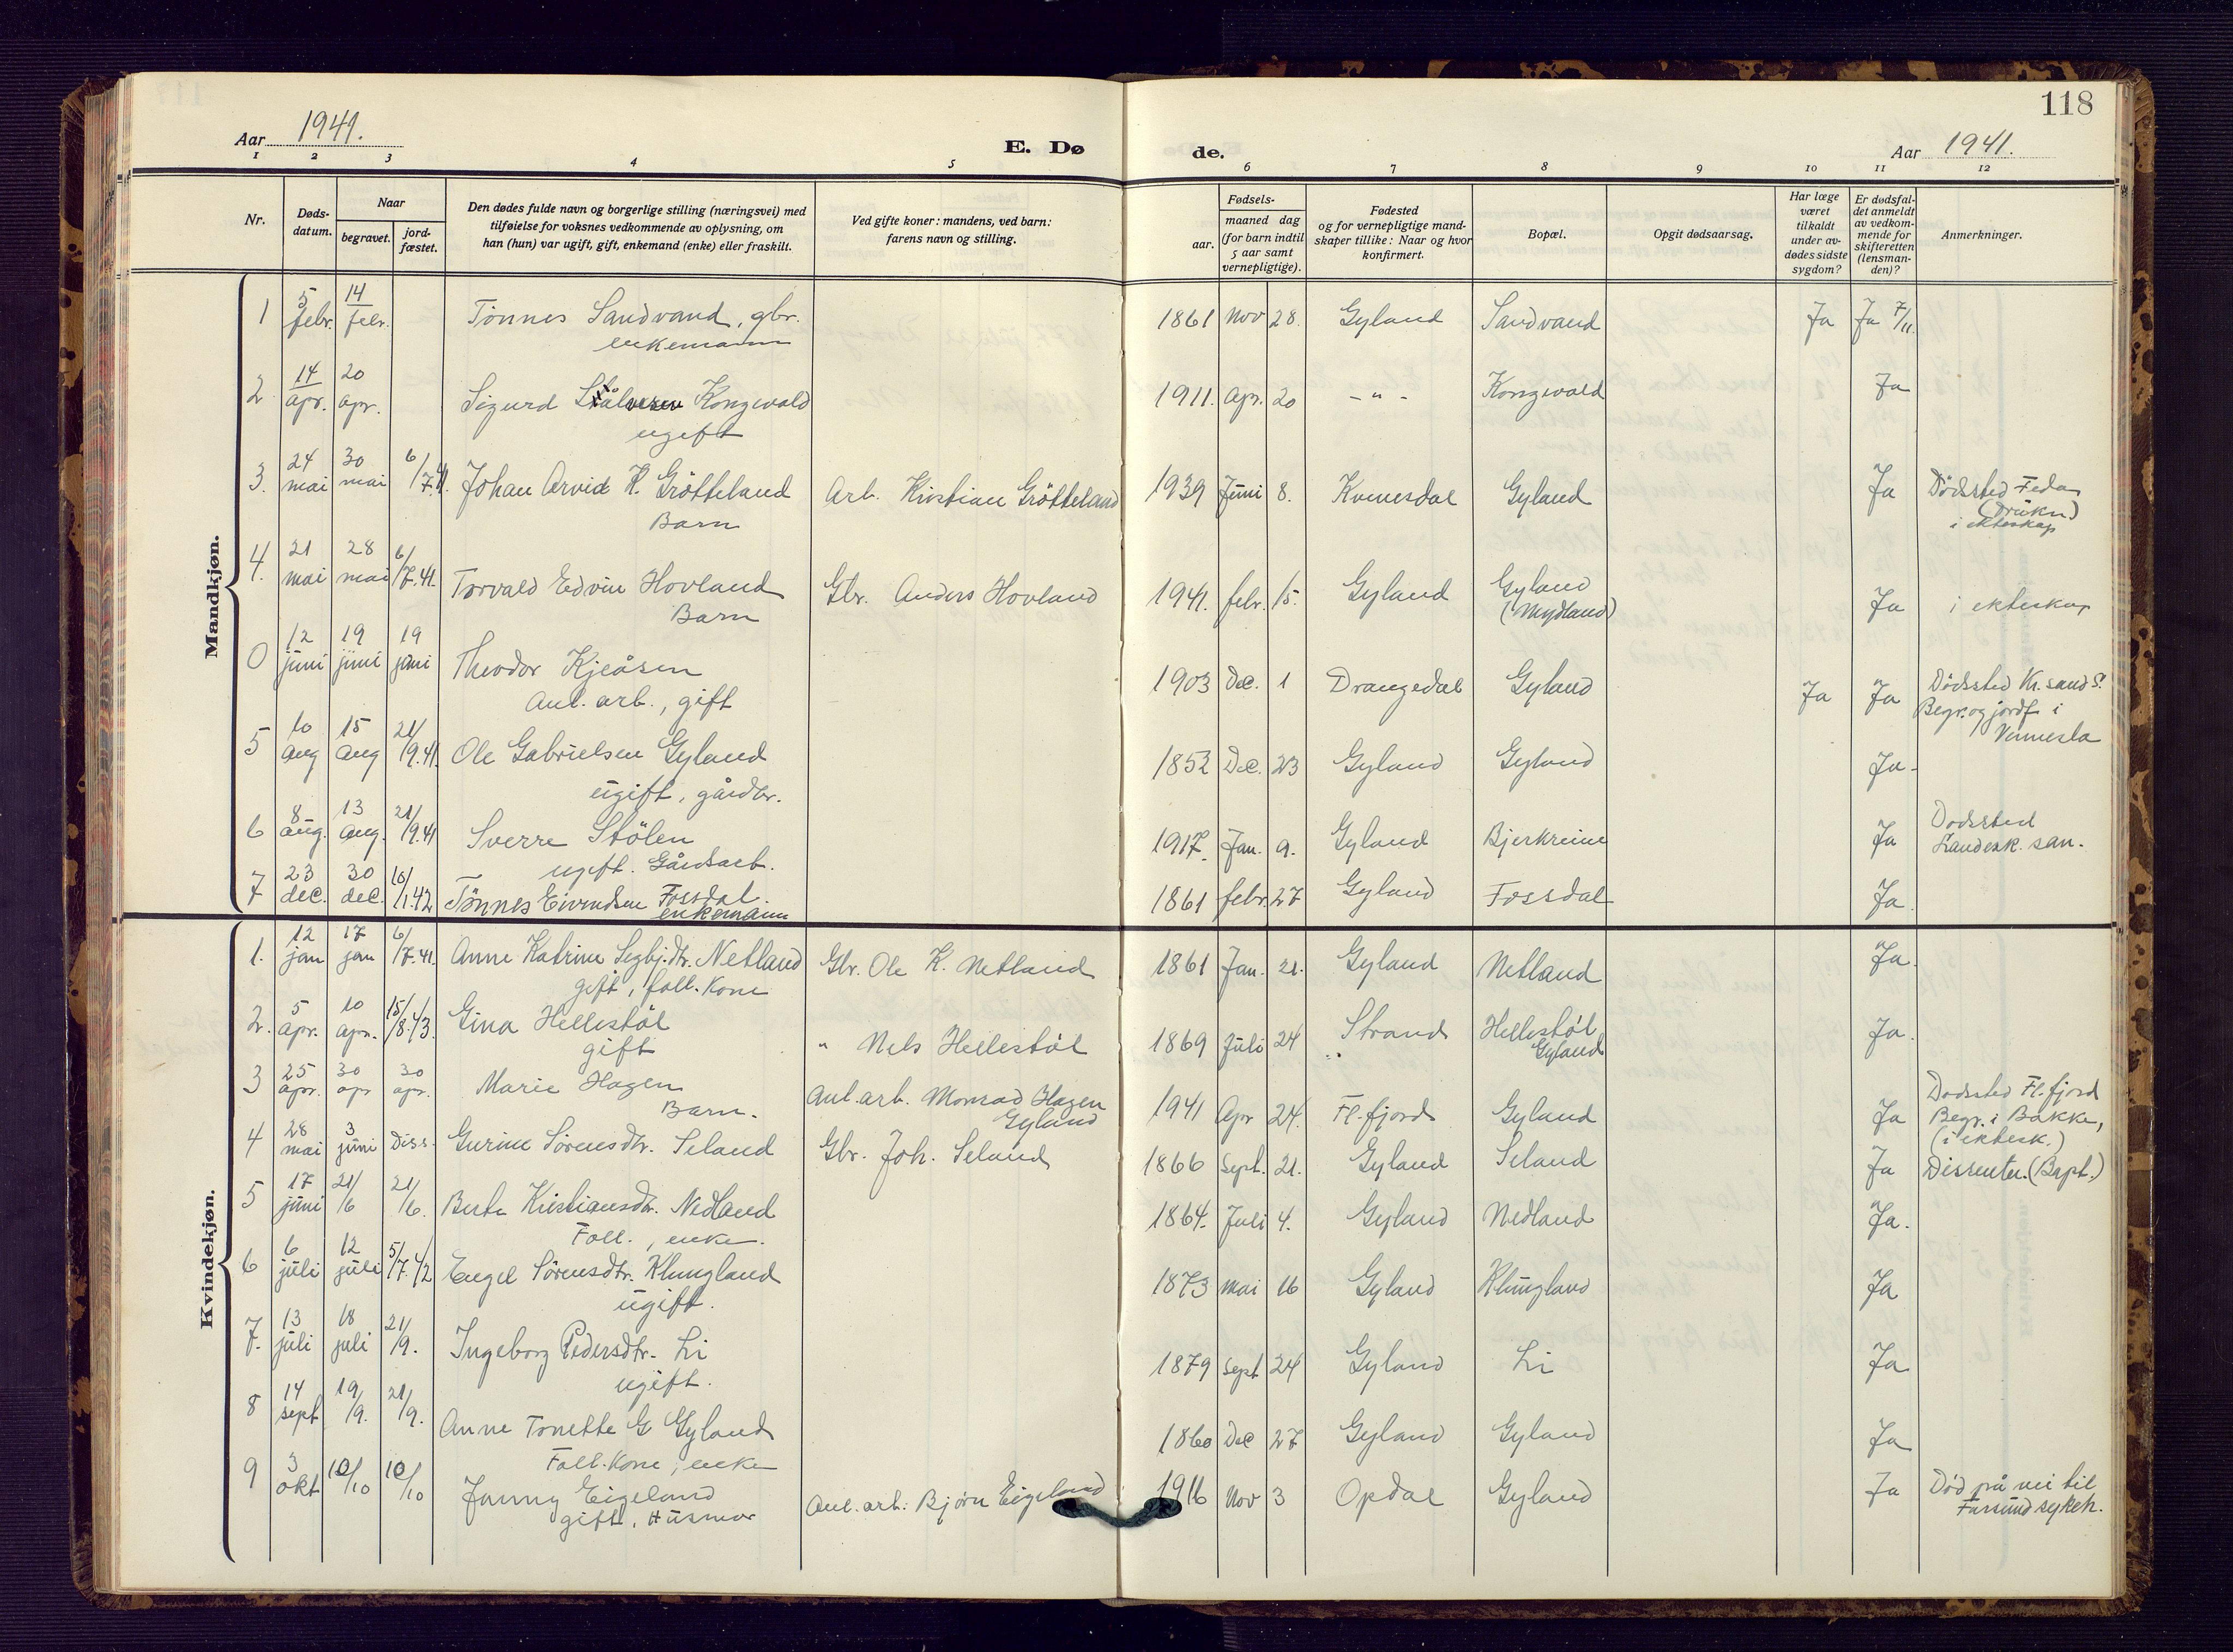 118
Aar 1941.
E. Dø de.
Aar 1941.
1 2 3 4 5 6 7 8 9 10 11 12
Nr.
Døds-
datum.
Naar
begravet.
jord-
fæstet.
Den dødes fulde navn og borgerlige stilling (næringsvei) med
tilføielse for voksnes vedkommende av oplysning, om
han (hun) var ugift, gift, enkemand (enke) eller fraskilt.
Ved gifte koner: mandens, ved barn:
farens navn og stilling.
Fødsels-
aar.
maaned dag
(for barn indtil
5 aar samt
vernepligtige).
Fødested
og for vernepligtige mand-
skaper tillike: Naar og hvor
konfirmert.
Bopæl.
Opgit dødsaarsag.
Har læge
været
tilkaldt
under av-
dødes sidste
sygdom?
Er dødsfal-
det anmeldt
av vedkom-
mende for
skifteretten
(lensman-
den)?
Anmerkninger.
Mandkjøn.
1 5 febr. 14 febr. Tönnes Sandvand, gbr. 1861 Nov 28. Gyland Sandvand Ja Ja 7/11.
enkemann
2 14 apr. 20 apr. Sigurd Kongevold 1911. Apr. 20 - " - Kongevold Ja
ugift
3. 24 mai 30 mai 6/7.41. Johan Arvid K. Grötteland Arb. Kristian Grötteland 1939 Juni 8. Kvinesdal Gyland Ja Dödsted Feda
Barn (Drukn)
i ekteskap
4. 21 mai 28 mai 6/7.41. Torvald Edvin Hovland Gbr. Anders Hovland 1941. febr. 15. Gyland Gyland Ja i ekteskap
Barn (Mydland)
0 12 juni 19 juni 19 juni Theodor Kjeåsen 1903 Dec. 1 Drangedal Gyland Ja Ja Dödsted Kr.sand S.
Anl. arb., gift Begr. og jordf. i
Vennesla
5 10 aug 15 aug 21/9.41. Ole Gabrielsen Gyland 1852 Dec. 23 Gyland Gyland Ja.
ugift, gårdbr.
6 8 aug. 13 aug. 21/9.41 Sverre Stölen 1917. Jan. 9. Gyland Bjerkreim Ja Dødsted
ugift. Gårdsarb. Landesk. san.
7 23 dec. 30 dec. 10/1.42 Tönnes Eivindsen Fossdal. 1861 febr. 27 Gyland Fossdal Ja.
enkemann
Kvindekjøn.
1. 12 jan 17 jan 6/7.41. Anne Katrine Segbj.dtr. Netland Gbr. Ole K. Netland 1861 Jan. 21. Gyland Netland Ja.
gift, foll. kone
2. 5 apr. 10 apr. 15/8.43 Gina Hellestöl " Nels Hellestöl 1869 Juli 24 Strand Hellestöl Ja.
gift Gyland
3 25 apr. 30 apr 30 apr. Marie Hagen Anl. arb. Monrad Hagen 1941 Apr 24. Fl.fjord Gyland Ja Dødsted Fl.fjord
Barn. Gyland Begr. i Bakke,
(i ektesk.)
4 28 mai 3 juni Diss. Gurine Sörensdtr. Seland Gbr. Joh. Seland 1866 sept. 21. Gyland Seland Ja Dissenter. (Bapt.)
5 17 juni 21/6 21/6. Berte Kristiansdtr. Nedland 1864. Juli 4. Gyland Nedland Ja.
Foll., enke.
6 6 juli 12 juli 5/7.42 Engel Sörensdtr. Klungland 1873 mai 16 Gyland Klungland Ja
ugift.
7. 13 juli 18 juli 21/9. Ingeborg Pedersdtr. Li 1879 sept 24 Gyland Li Ja
ugift.
8 14 sept 19/9. 21/9. Anne Tonette G Gyland 1860 Dec 27 Gyland Gyland Ja
Foll. Kone, enke
9 3 okt 10/10 10/10 Janny Eigeland Anl. arb: Bjørn Eigeland 1916 Nov 3 Opdal Gyland Ja Død på vei til
gift, Husmor Farsund sykeh.